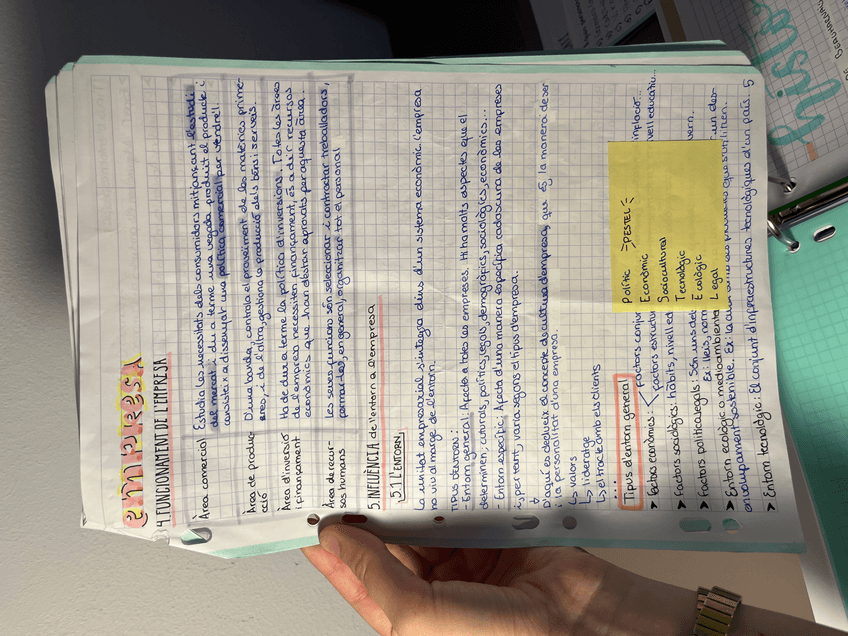 empresa
4. FUNCIONAMENT DE L'EMPRESA
Àrea comercial
Estudia les necessitats dels consumidors mitjançant l'estudi
del mercat i du a terme una vegada produit el producte i
consisteix a dissenyar una política comercial per vendre'l.
Àrea de produc-
ció
D'una banda, controla el proveïment de les matèries prime-
eres, i de l'altra, gestiona la producció dels béns i serveis.
Àrea d'inversió
i finançament
Ha de dur a terme la política d'inversions. Totes les àrees
de l'empresa necessiten finançament, és a dir, recursos
econòmics que han d'estar aprovats per aquesta àrea.
Àrea de recur-
sos humans
Les seves funcions són seleccionar i contractar treballadors,
formar-los, en general, organitzar tot el personal
5. INFLUÈNCIA de l'entorn a l'empresa
5.1 L'ENTORN
La unitat empresarial s'integra dins d'un sistema econòmic. L'empresa
no viu al marge de l'entorn.
TIPUS D'ENTORNS:
- Entorn general: Afecta a totes les empreses. Hi ha molts aspectes que el
determinen; culturals, polítics, legals, demogràfics, sociològics, econòmics...
- Entorn específic: Afecta d'una manera específica cadascuna de les empreses
i, per tant, varia segons el tipus d'empresa.
D'aquí es dedueix el concepte de cultura d'empresa, que és la manera de ser
i la personalitat d'una empresa.
↳ valors
↳ lideratge
↳ el tracte amb els clients
...
Tipus d'entorn general
Polític =PESTEL=
Econòmic
Sociocultural
Tecnològic
Ecològic
Legal
> Factors econòmics: Factors conjun inflació...
Factors estructur nivell educatiu...
> Factors sociològics: hàbits, nivell ed
> Factors políticolegals: Són uns del vern.
Ex: lleis, nor
> Entorn ecològic o medioambiental un des-
envolupament sostenible. Ex:
> Entorn tecnològic: El conjunt d'infraestructures tecnològiques d'un país.
5